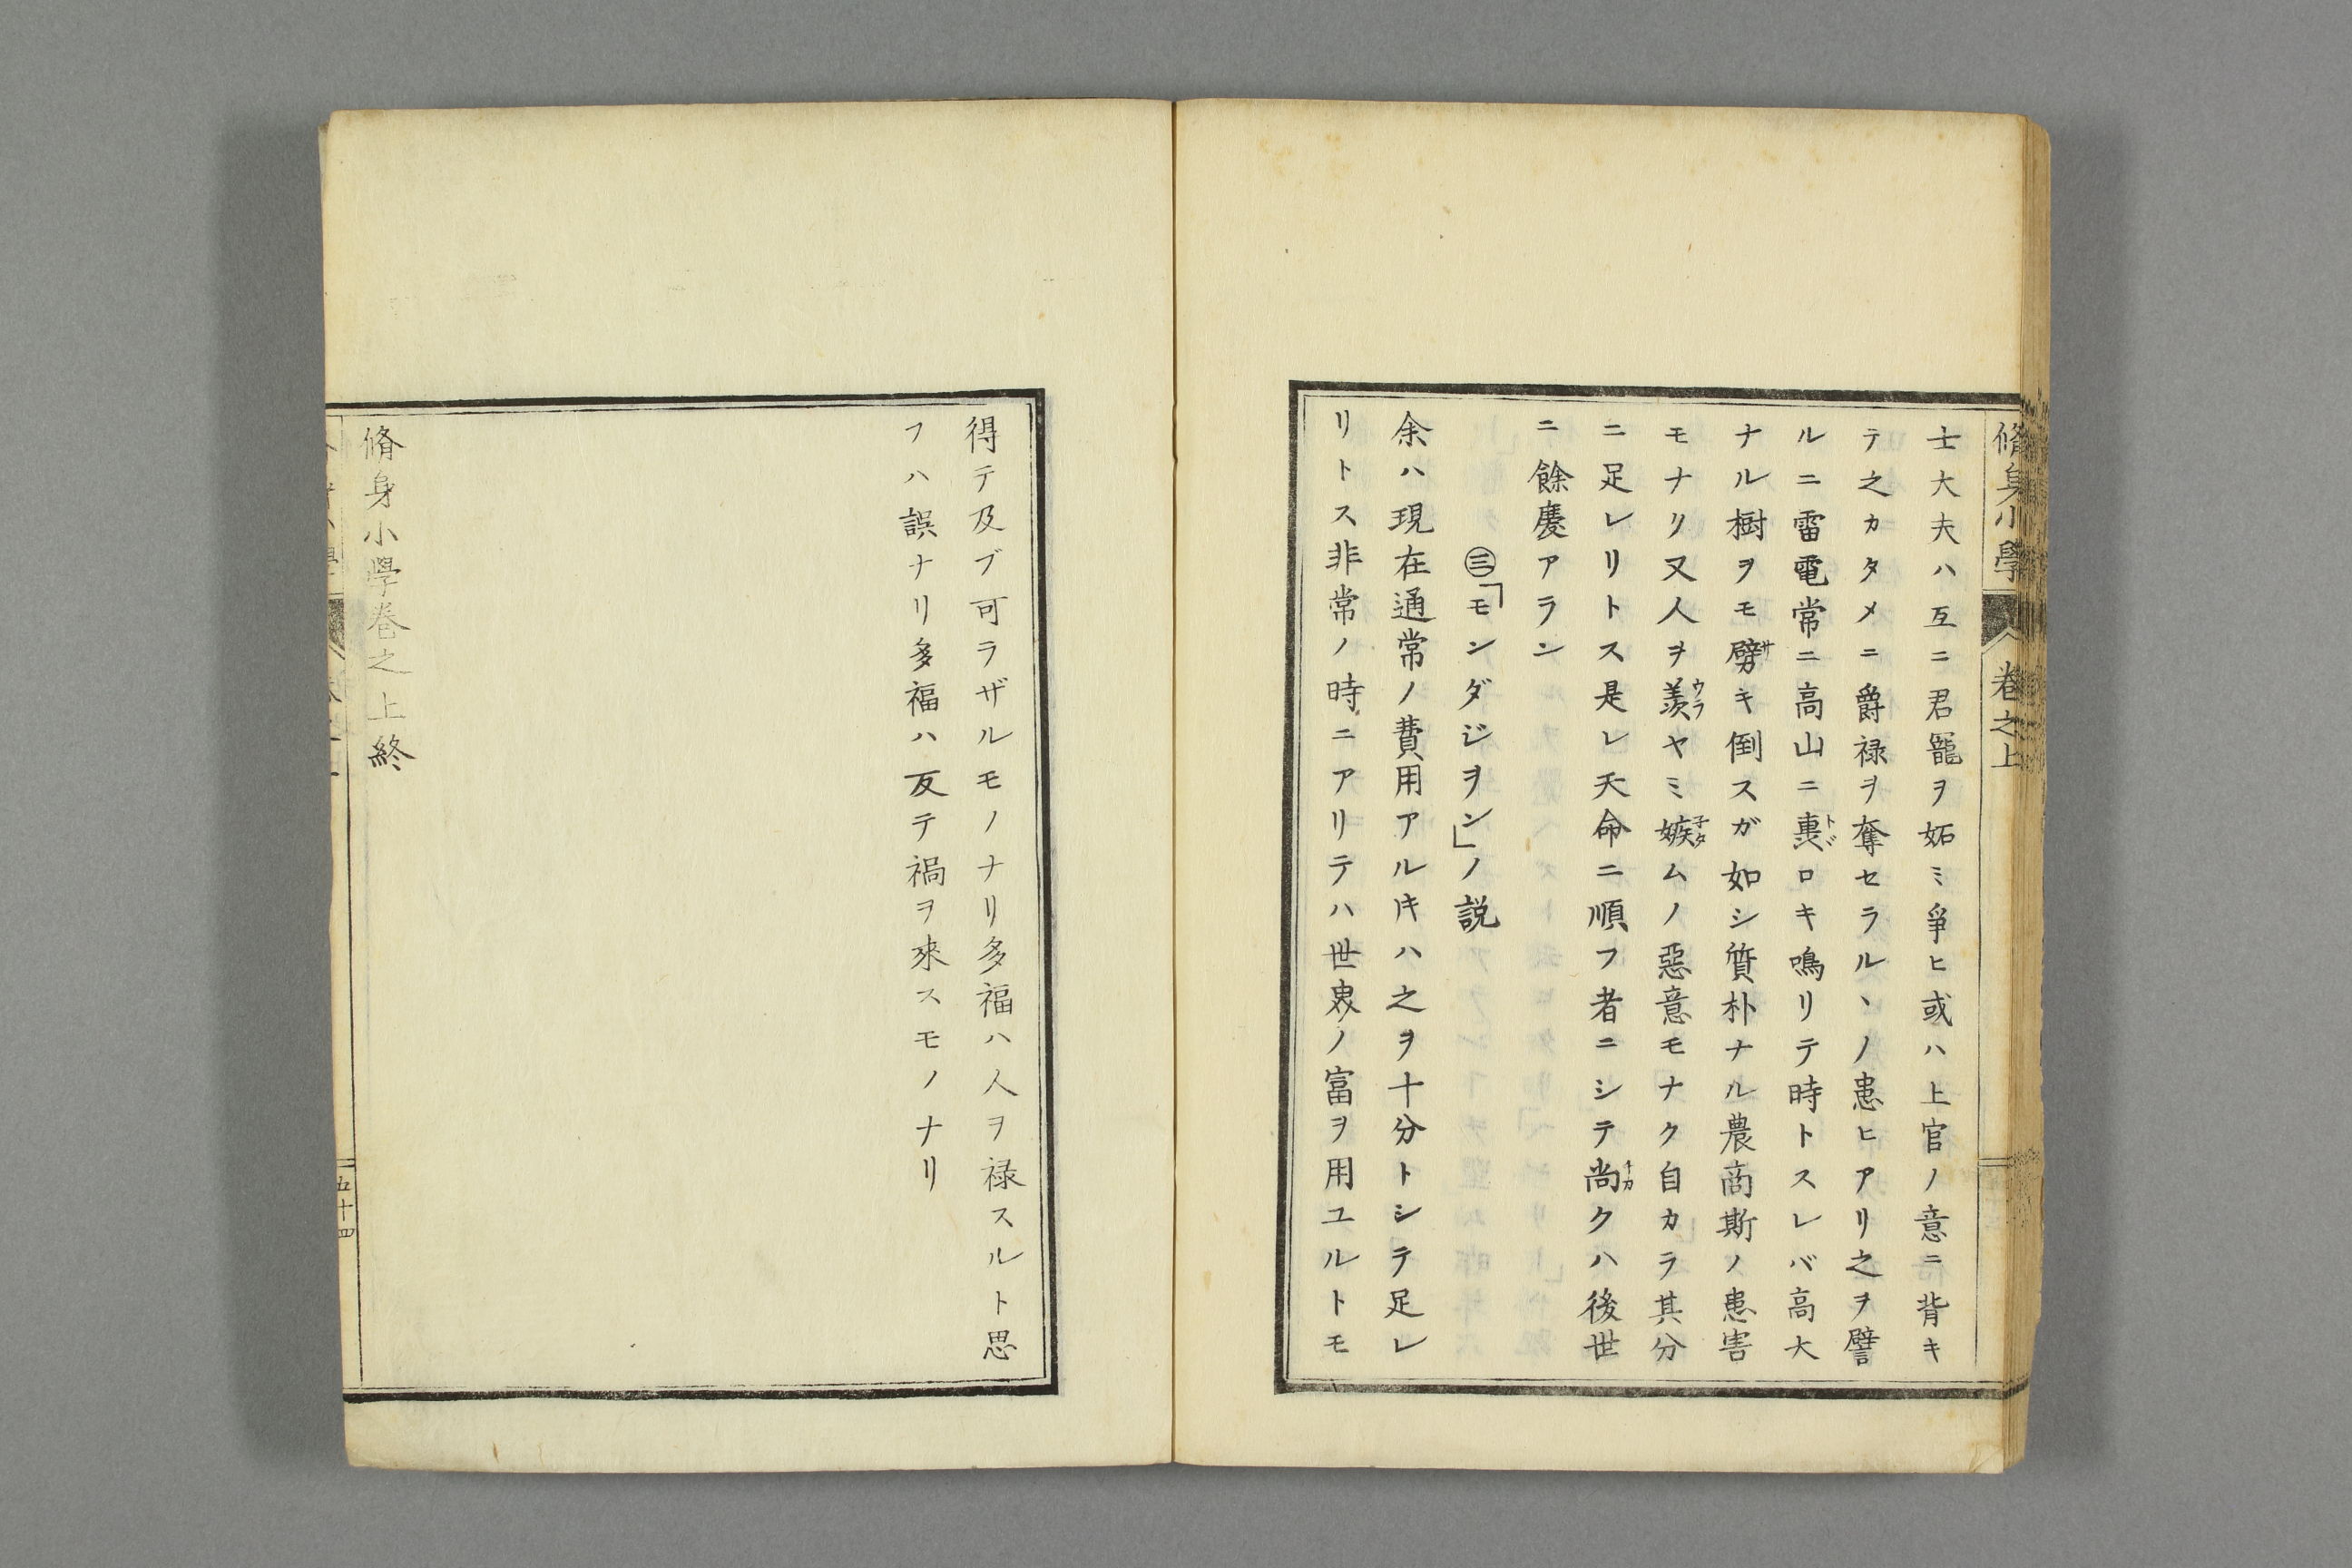 脩身小學 卷之上
士大夫ハ互ニ君寵ヲ妬ミ爭ヒ或ハ上官ノ意ニ背キ
テ之カタメニ爵禄ヲ奪セラルヽノ患ヒアリ之ヲ譬
ルニ雷電常ニ高山ニ轟ロキ鳴リテ時トスレバ高大
ナル樹ヲモ劈キ倒スガ如シ質朴ナル農商斯ノ患害
モナリ又人ヲ羨ヤミ嫉ムノ惡意モナク自カラ其分
ニ足レリトス是レ天命ニ順フ者ニシテ尚クハ後世
ニ餘慶アラン
㊂「モンダジヲン」ノ説
余ハ現在通常ノ費用アル𪜈ハ之ヲ十分トシテ足レ
リトス非常ノ時ニアリテハ世界ノ富ヲ用ユルトモ
得テ及ブ可ラザルモノナリ多福ハ人ヲ禄スルト思
フハ誤ナリ多福ハ反テ禍ヲ來スモノナリ
脩身小學卷之上終
五十四